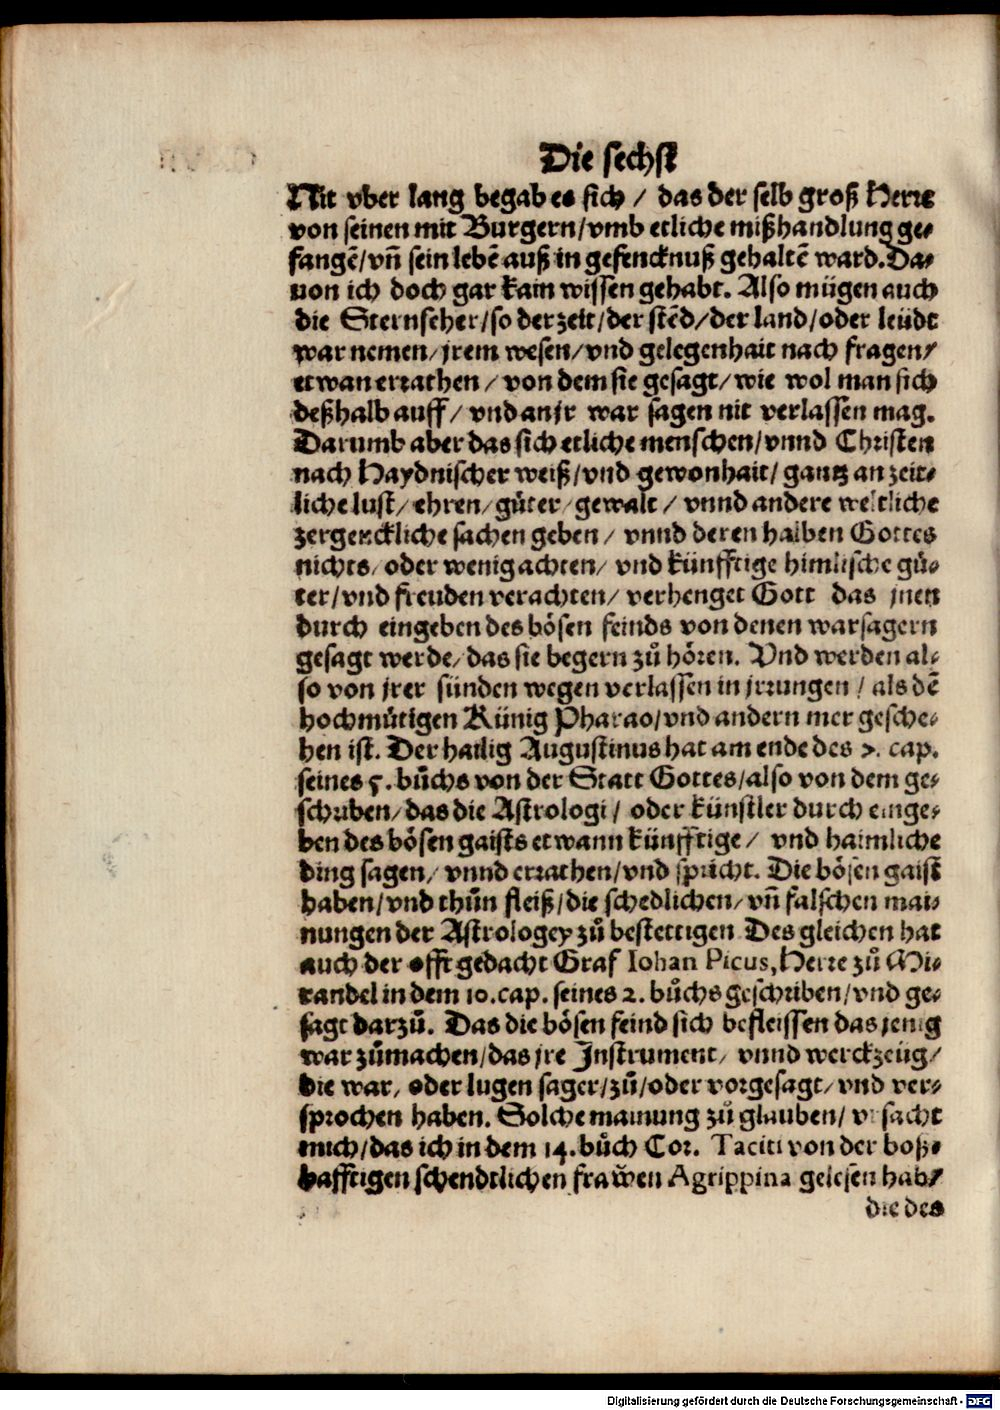 Die sechst
Nit vber lang begab es sich / das der selb groß Herre
von seinen mit Burgern/vmb etliche mißhandlung ge⸗
fangē/vñ sein lebē auß in gefencknuß gehaltē ward. Da⸗
uon ich doch gar kain wissen gehabt. Also mügen auch
die Sternseher/so der zeit/der stēd/der land/oder leüdt
war nemen/jrem wesen/vnd gelegenhait nach fragen/
etwan errathen/von dem sie gesagt/wie wol man sich
deßhalb auff/vnd an jr war sagen nit verlassen mag.
Darumb aber das sich etliche menschen/vnnd Christen
nach Haydnischer weiß/vnd gewonhait/gantz an zeit⸗
liche lust/ehren/gůter/gewalt/vnnd andere weltliche
zergenckliche sachen geben/vnnd deren halben Gottes
nichts/oder wenig achten/vnd künfftige himlische gů⸗
ter/vnd freuden verachten/verhenget Gott das jnen
durch eingeben des bösen feinds von denen warsagern
gesagt werde/das sie begern zů hören. Vnd werden al⸗
so von jrer sünden wegen verlassen in jrrungen/als dē
hochmůtigen Künig Pharao/vnd andern mer gesche⸗
hen ist. Der hailig Augustinus hat am ende des 7. cap.
seines 5. bůchs von der Statt Gottes/also von dem ge⸗
schriben/das die Astrologi/oder künstler durch einge⸗
ben des bösen gaists etwann künfftige/vnd haimliche
ding sagen/vnnd errathen/vnd spricht. Die bösen gaist
haben/vnd thůn fleiß/die schedlichen/vñ falschen mai⸗
nungen der Astrologey zů bestettigen Des gleichen hat
auch der offt gedacht Graf Iohan Picus, Herre zů Mi⸗
randel in dem 10. cap. seines 2. bůchs geschriben/vnd ge⸗
sagt darzů. Das die bösen feind sich befleissen das jenig
war zůmachen/das jre Instrument/vnnd werckzeüg/
die war/oder lugen sager/zů/oder vorgesagt/vnd ver⸗
sprochen haben. Solche mainung zů glauben/vrsacht
mich/das ich in dem 14. bůch Cor. Taciti von der boß⸗
hafftigen schendtlichen frawen Agrippina gelesen hab/
die des
Digitalisierung gefördert durch die Deutsche Forschungsgemeinschaft - DFG